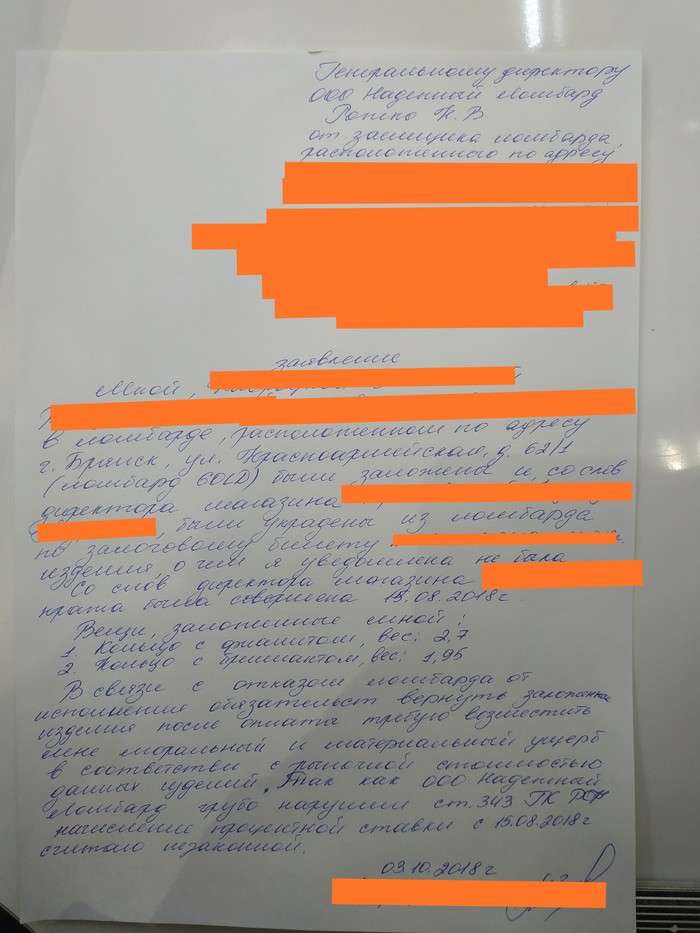 Генеральному директору
ООО Надежный Ломбард
от заемщика ломбарда
расположенного по адресу
заявление
Мной,
в ломбарде, расположенном по адресу
г. Брянск, ул. Красноармейская, д. 62/1
(ломбард 60LD) были заложены и, со слов
директора магазина
, были украдены из ломбарда
по залоговому билету
изделия о чем я уведомлена не была
Со слов директора магазина
кража была совершена 15.08.2018г.
Вещи, заложенные мной:
1. Кольцо с фианитом, вес: 2,7
2 Кольцо с бриллиантом, вес: 1,95
В связи с отказом ломбарда от
исполнения обязательст вернуть заложенные
изделия после оплаты требую возместить
мне моральный и материальный ущерб
в соответствии с рыночной стоимостью
данных изделий. Так как ООО Надежный
Ломбард грубо нарушил ст. 343 ГК РФ
начисление процентной ставки с 15.08.2018г
считаю незаконной.
03.10.2018г